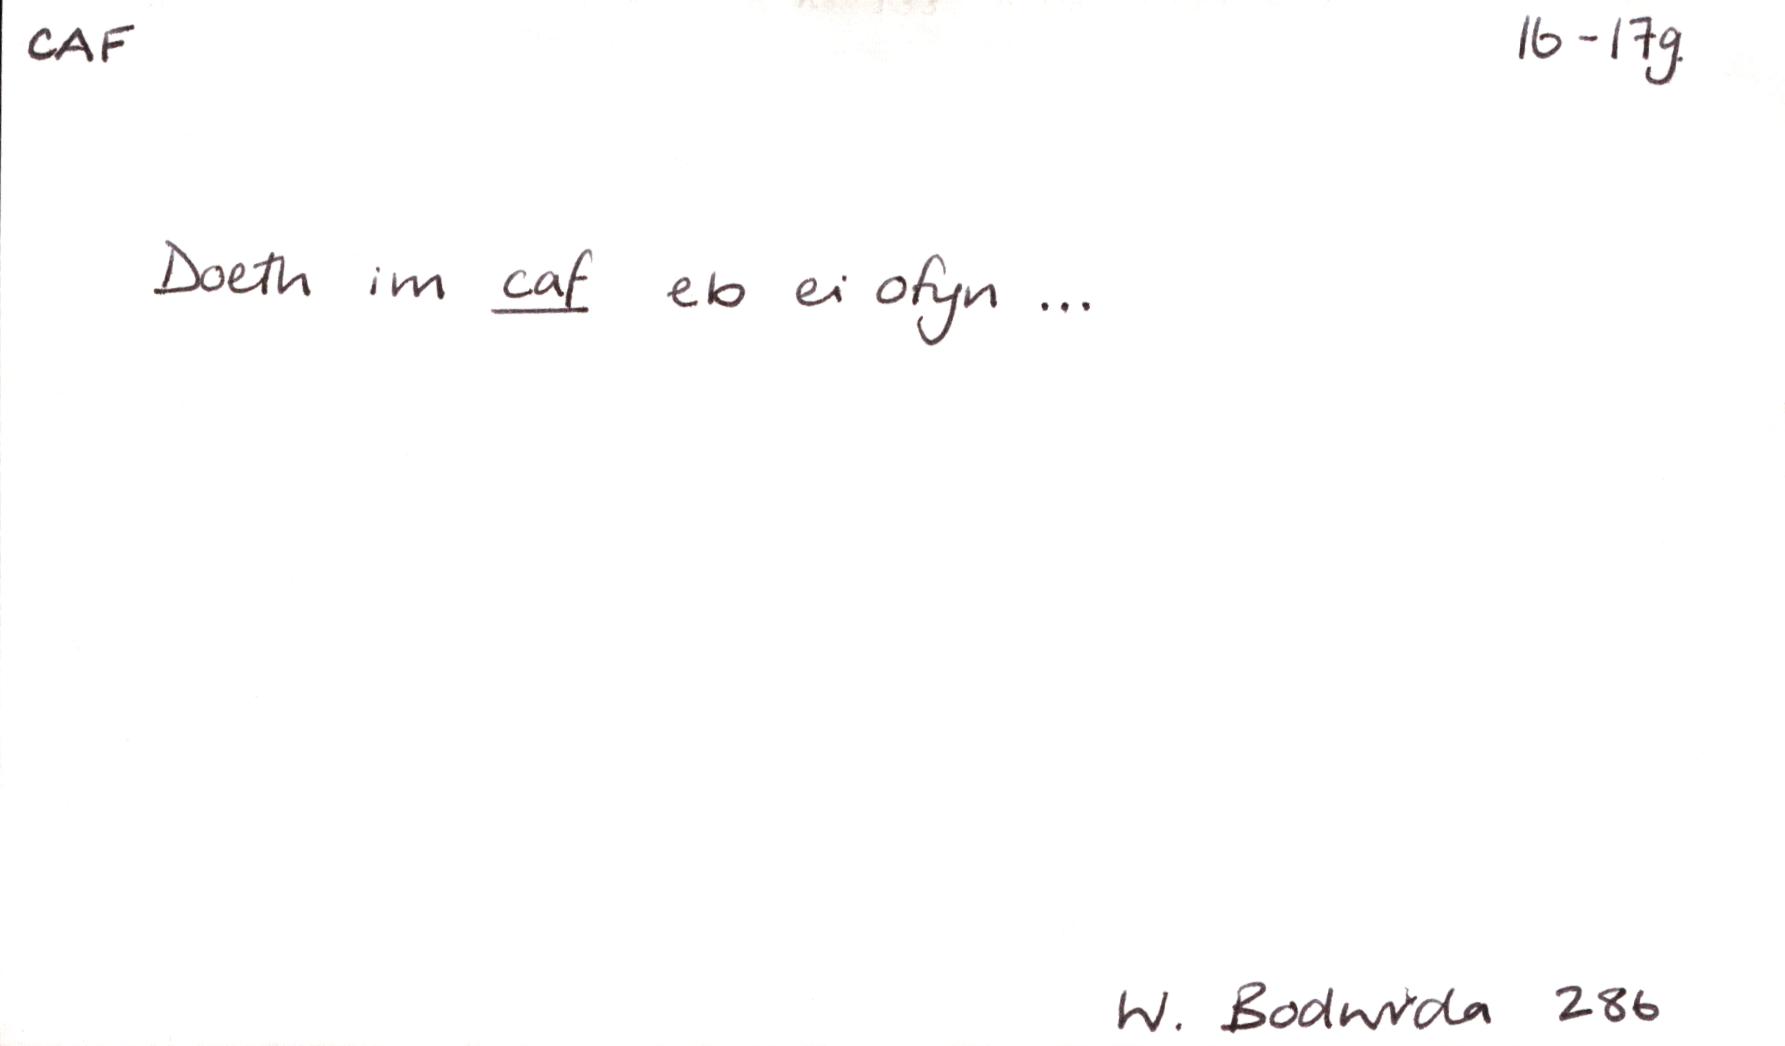 CAF 16-17g.
Doeth im caf eb ei ofyn ...
W. Bodwrda 286